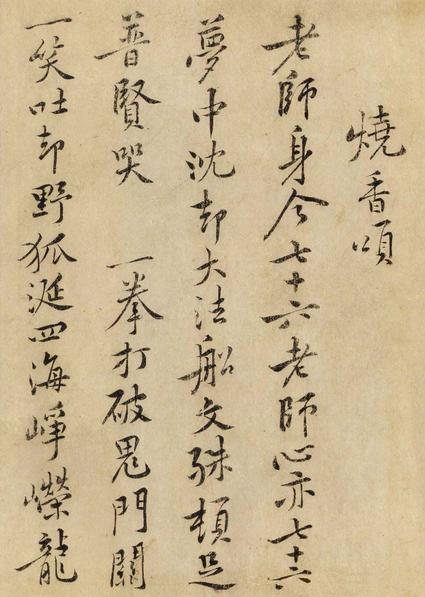 燒香頌
老師身今七十六老師心亦七十六
夢中沈却大法船文殊頓足
普賢哭 一拳打破鬼門關
一笑吐却野狐涎四海崢嶸龍